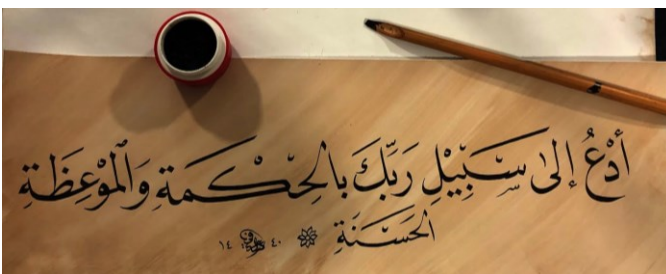 أدْعُ إلىٰ سَبِيْلِ رَبِّكَ بالحِكْمَةِ وَالْمَوْعِظَةِ
الحَسَنَةِ
١٤ ٤٠